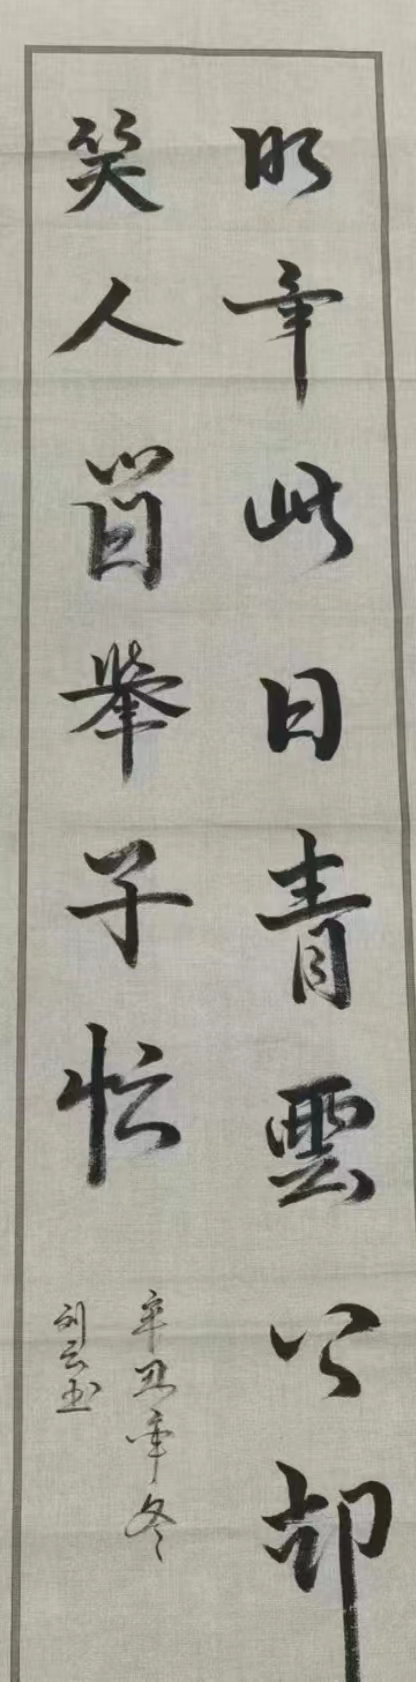 明年此日青雲公却
笑人間舉子忙
辛丑年冬
刘云书